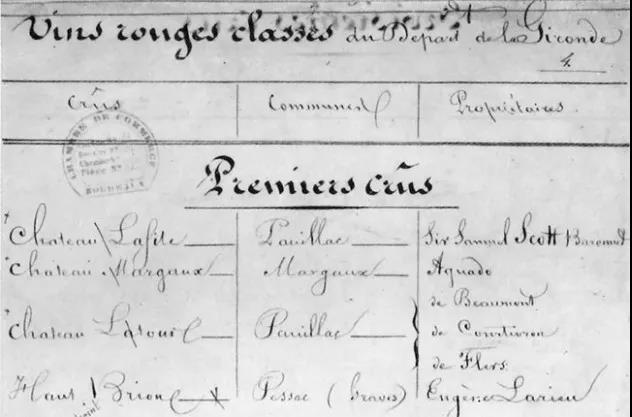 Vins rouges classés du Départ de la Gironde
4.
Crûs Communes Propriétaires
CHAMBRE DE COMMERCE
BORDEAUX
Premiers crûs
Chateau Lafite Pauillac Sir Samuel Scott Baronnet
Chateau Margaux Margaux Aguado
de Beaumont
Chateau Latour Pauillac de Courtivron
de Flers.
Haut Brion Pessac (Graves) Eugène Larieu